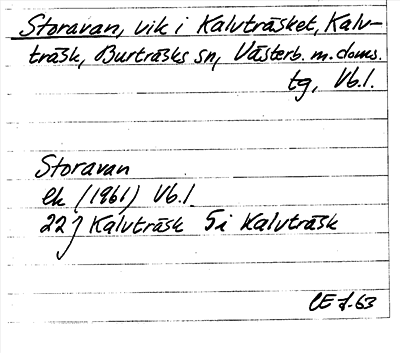 Storavan, vik i Kalvträsket, Kalv-
träsk, Burträsks sn, Västerb. m. doms.
tg, Vb.l.
Storavan
ek (1961) Vb.l.
22 j Kalvträsk 5 i Kalvträsk
CE f.63